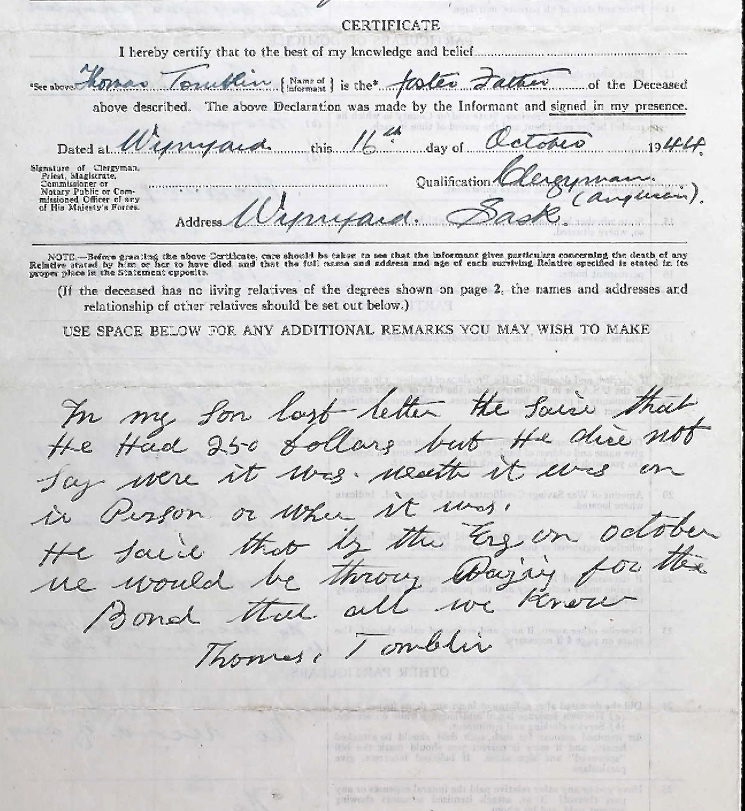 CERTIFICATE
I hereby certify that to the best of my knowledge and belief
*See above Thomas Tomblin { Name of Informant } is the* foster Father of the Deceased
above described. The above Declaration was made by the Informant and signed in my presence.
Dated at Wynyard. this 16th day of October 1944.
Signature of Clergyman,
Priest, Magistrate,
Commissioner or
Notary Public or Com-
missioned Officer of any
of His Majesty's Forces.
Qualification Clergyman.
(Anglican).
Address Wynyard. Sask.
NOTE.—Before granting the above Certificate, care should be taken to see that the informant gives particulars concerning the death of any
Relative stated by him or her to have died and that the full name and address and age of each surviving Relative specified is stated in its
proper place in the Statement opposite.
(If the deceased has no living relatives of the degrees shown on page 2, the names and addresses and
relationship of other relatives should be set out below.)
USE SPACE BELOW FOR ANY ADDITIONAL REMARKS YOU MAY WISH TO MAKE
In my son last letter He said that
He Had 250 dollars but He did not
Say were it was. it was on
is Person or wher it was.
He said that by the on october
would be throug for the
Bond that all we know
Thomas, Tomblin